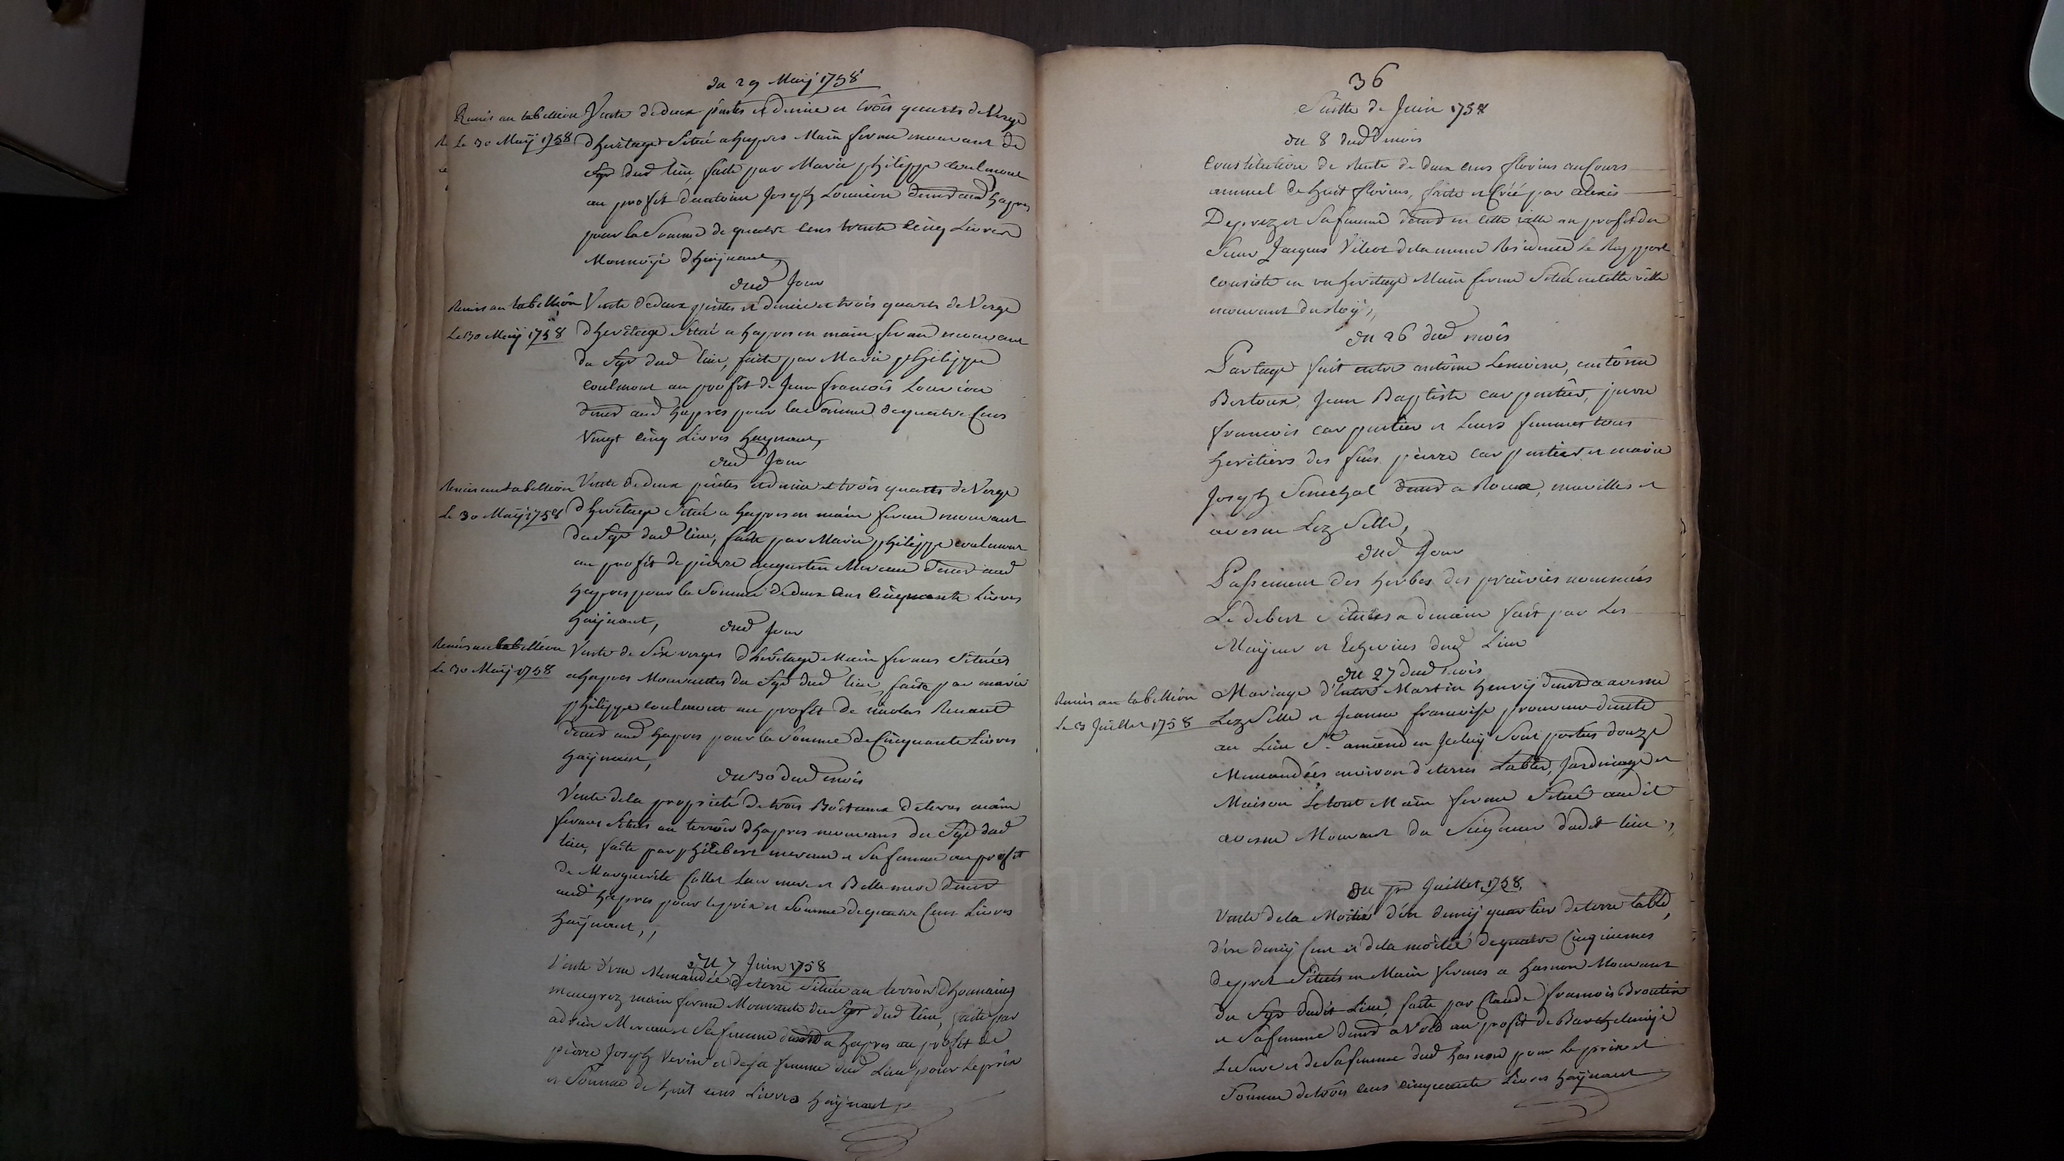 du 29 Maÿ 1758
Remis au tabellion
Le 30 Maÿ 1758
Vente de deux pintes et demie et trois quarts de Verge
d'heritage Situé a hapres Main ferme mouvant du
Sgr dud lieu, faite par Marie philippe coulmont
au profit d'antoine Joseph Louvion demt aud hapres
pour la Somme de quatre cens trente cinq Livres
Monnoÿe d'haÿnaut,
dud Jour
Remis au tabellion
Le 30 Maÿ 1758
Vente de deux pintes et demie et trois quarts de Verge
d'heritage Situé a hapres en main ferme mouvant
du Sgr dud lieu, faite par Marie philippe
coulmont au profit de Jean francois Louvion
demt aud hapres pour la Somme de quatre Cens
Vingt cinq Livres haynaut,
dud Jour
Remis au tabellion
Le 30 Maÿ 1758
Vente de deux pintes et demie et trois quarts de Verge
d'heritage Situé a hapres en main ferme mouvant
du Sgr dud lieu, faite par Marie philippe coulmont
au profit de pierre augustin Mereau demt aud
hapres pour la Somme de deux cens cinquante Livres
haÿnaut,
dud Jour
Remis au tabellion
Le 30 Maÿ 1758
Vente de Six verges d'heritage Main fermes Situés
a hapres Mouvantes du Sgr dud lieu, faite par marie
philippe coulmont au profit de nicolas Renaut
demt aud hapres pour la Somme de Cinquante Livres
haÿnaut,
du 30 dud mois
Vente de la propriété de trois Boitteaux de terres main
fermes Situés au terroir d'hapres mouvans du Sgr dud
lieu, faite par philibert mereau et Sa femme au profit
de Marguerite Collet leur mere et Belle mere demt
aud hapres pour le prix et Somme de quatre Cens Livres
haÿnaut,,
du 7 Juin 1758
Vente d'une Mencaudée de terre Située au terroir d'
main ferme Mouvante du Sgr dud lieu, faite par
adrien Mereau et Sa femme demt a hapres au profit de
pierre Joseph Verin et de Sa femme dud Lieu pour le prix
et Somme de huit cens Livres haÿnaut,
36
Suitte de Juin 1758
du 8 dud mois
Constitution de Rente de deux cens florins au Cours
annuel de huit florins, faite et Créé par alexis
Deprez et Sa femme demt en cette ville au profit du
Sieur Jacques de la meme Residence le Rapport
consiste en un heritage Main ferme Situé en cette ville
mouvant du Roÿ,
du 26 dud mois
Partage fait entre antoine Lemoine, antoine
Bertoux, Jean Baptiste carpentier, pierre
francois carpentier et Leurs femmes tous
heritiers des feus pierre carpentier et marie
Joseph Senechal demt a, et
avesne Lez Selle,
dud Jour
Passement des herbes des prairies nommées
Le debert Situées a denain fait par Les
Mayeur et Echevins dud Lieu
du 27 dud mois
Remis au tabellion
Le 3 Juillet 1758
Mariage d'Entre Martin henrÿ demt a avesne
Lez Selle et Jeanne francoise demte
au Lieu St amand en Sont portés douze
Mencaudées environ de terres Lable, Jardinage et
Maison Le tout Main ferme Situé audit
avesne Mouvant du Seigneur dudit lieu,
du pr Juillet 1758
Vente de la Moitié d'un demÿ quartier de terre lable,
d'un demÿ Cent et de la moitié de quatre Cinquiemes
de pret Situés en Main fermes a hasnon Mouvant
du Sgr dudit Lieu, faite par Claude francois Broutin
et Sa femme demt a au profit de Barthelemÿ
et de Sa femme dud hasnon pour le prix et
Somme de trois cens cinquante Livres haÿnaut